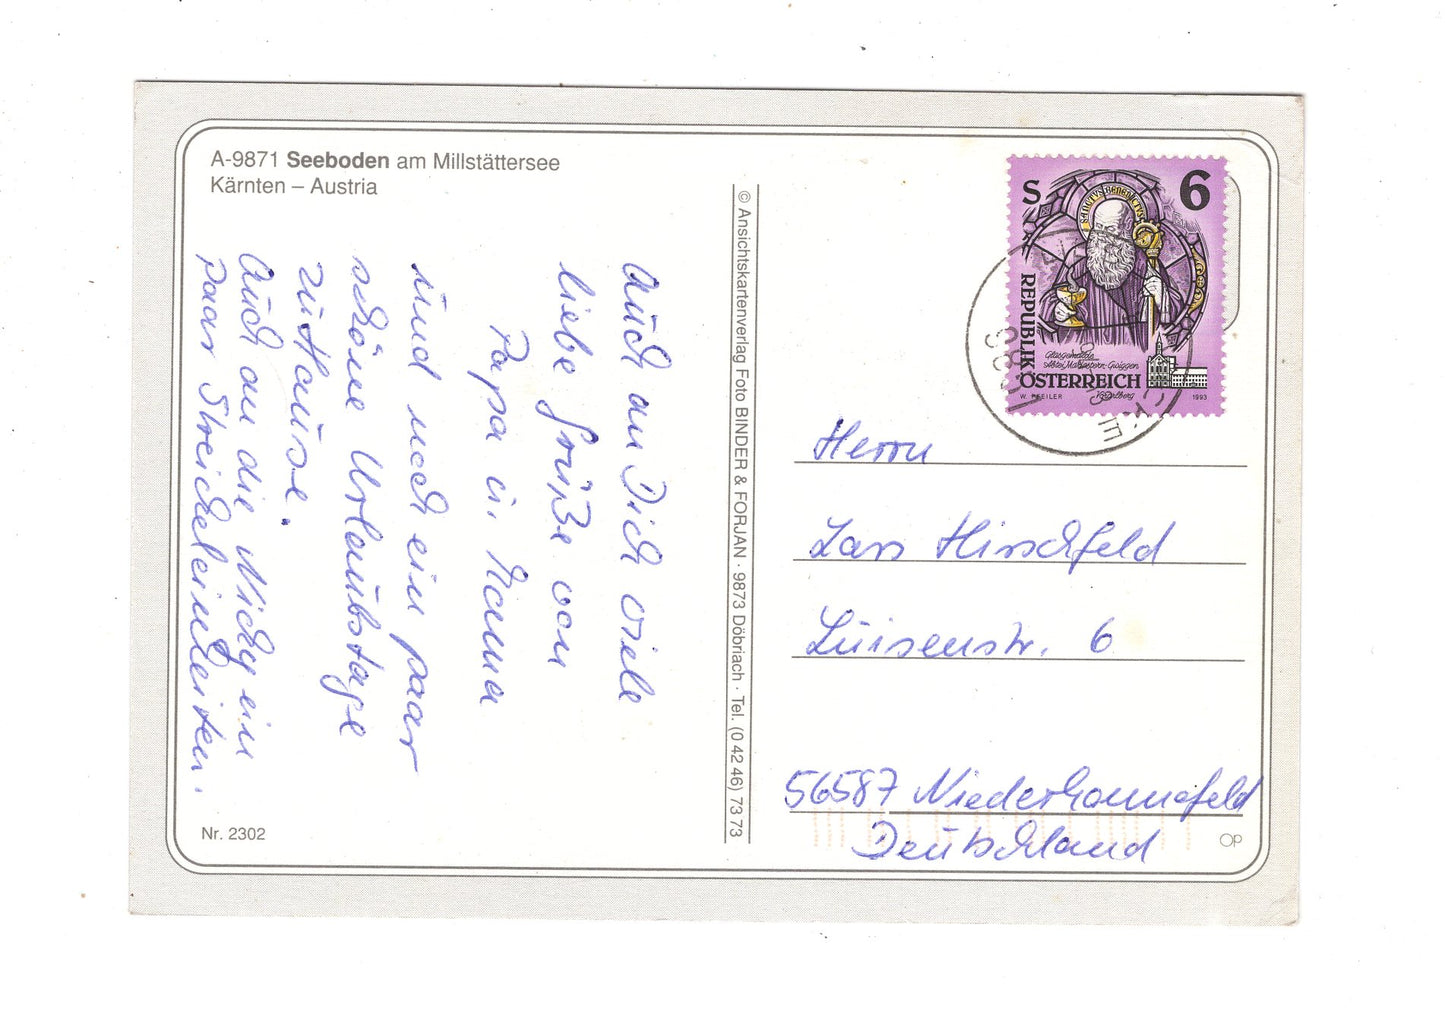 A-9871 Seeboden am Millstättersee
Kärnten – Austria
Auch an Dich viele
liebe Grüße von
Papa u. Mama
und noch ein paar
schöne Urlaubstage
zu Hause.
Auch an die Nicky ein
paar Streicheleinheiten.
Nr. 2302
© Ansichtskartenverlag Foto BINDER & FORJAN · 9873 Döbriach · Tel. (0 42 46) 73 73
S 6
SANCTVS BENEDICTVS
REPUBLIK
ÖSTERREICH
Glasgemälde
Abtei Mariastern-Gwiggen
Vorarlberg
W. PFEILER
1993
Herrn
Lars Hirschfeld
Luisenstr. 6
56587 Niederhonnefeld
Deutschland
OP